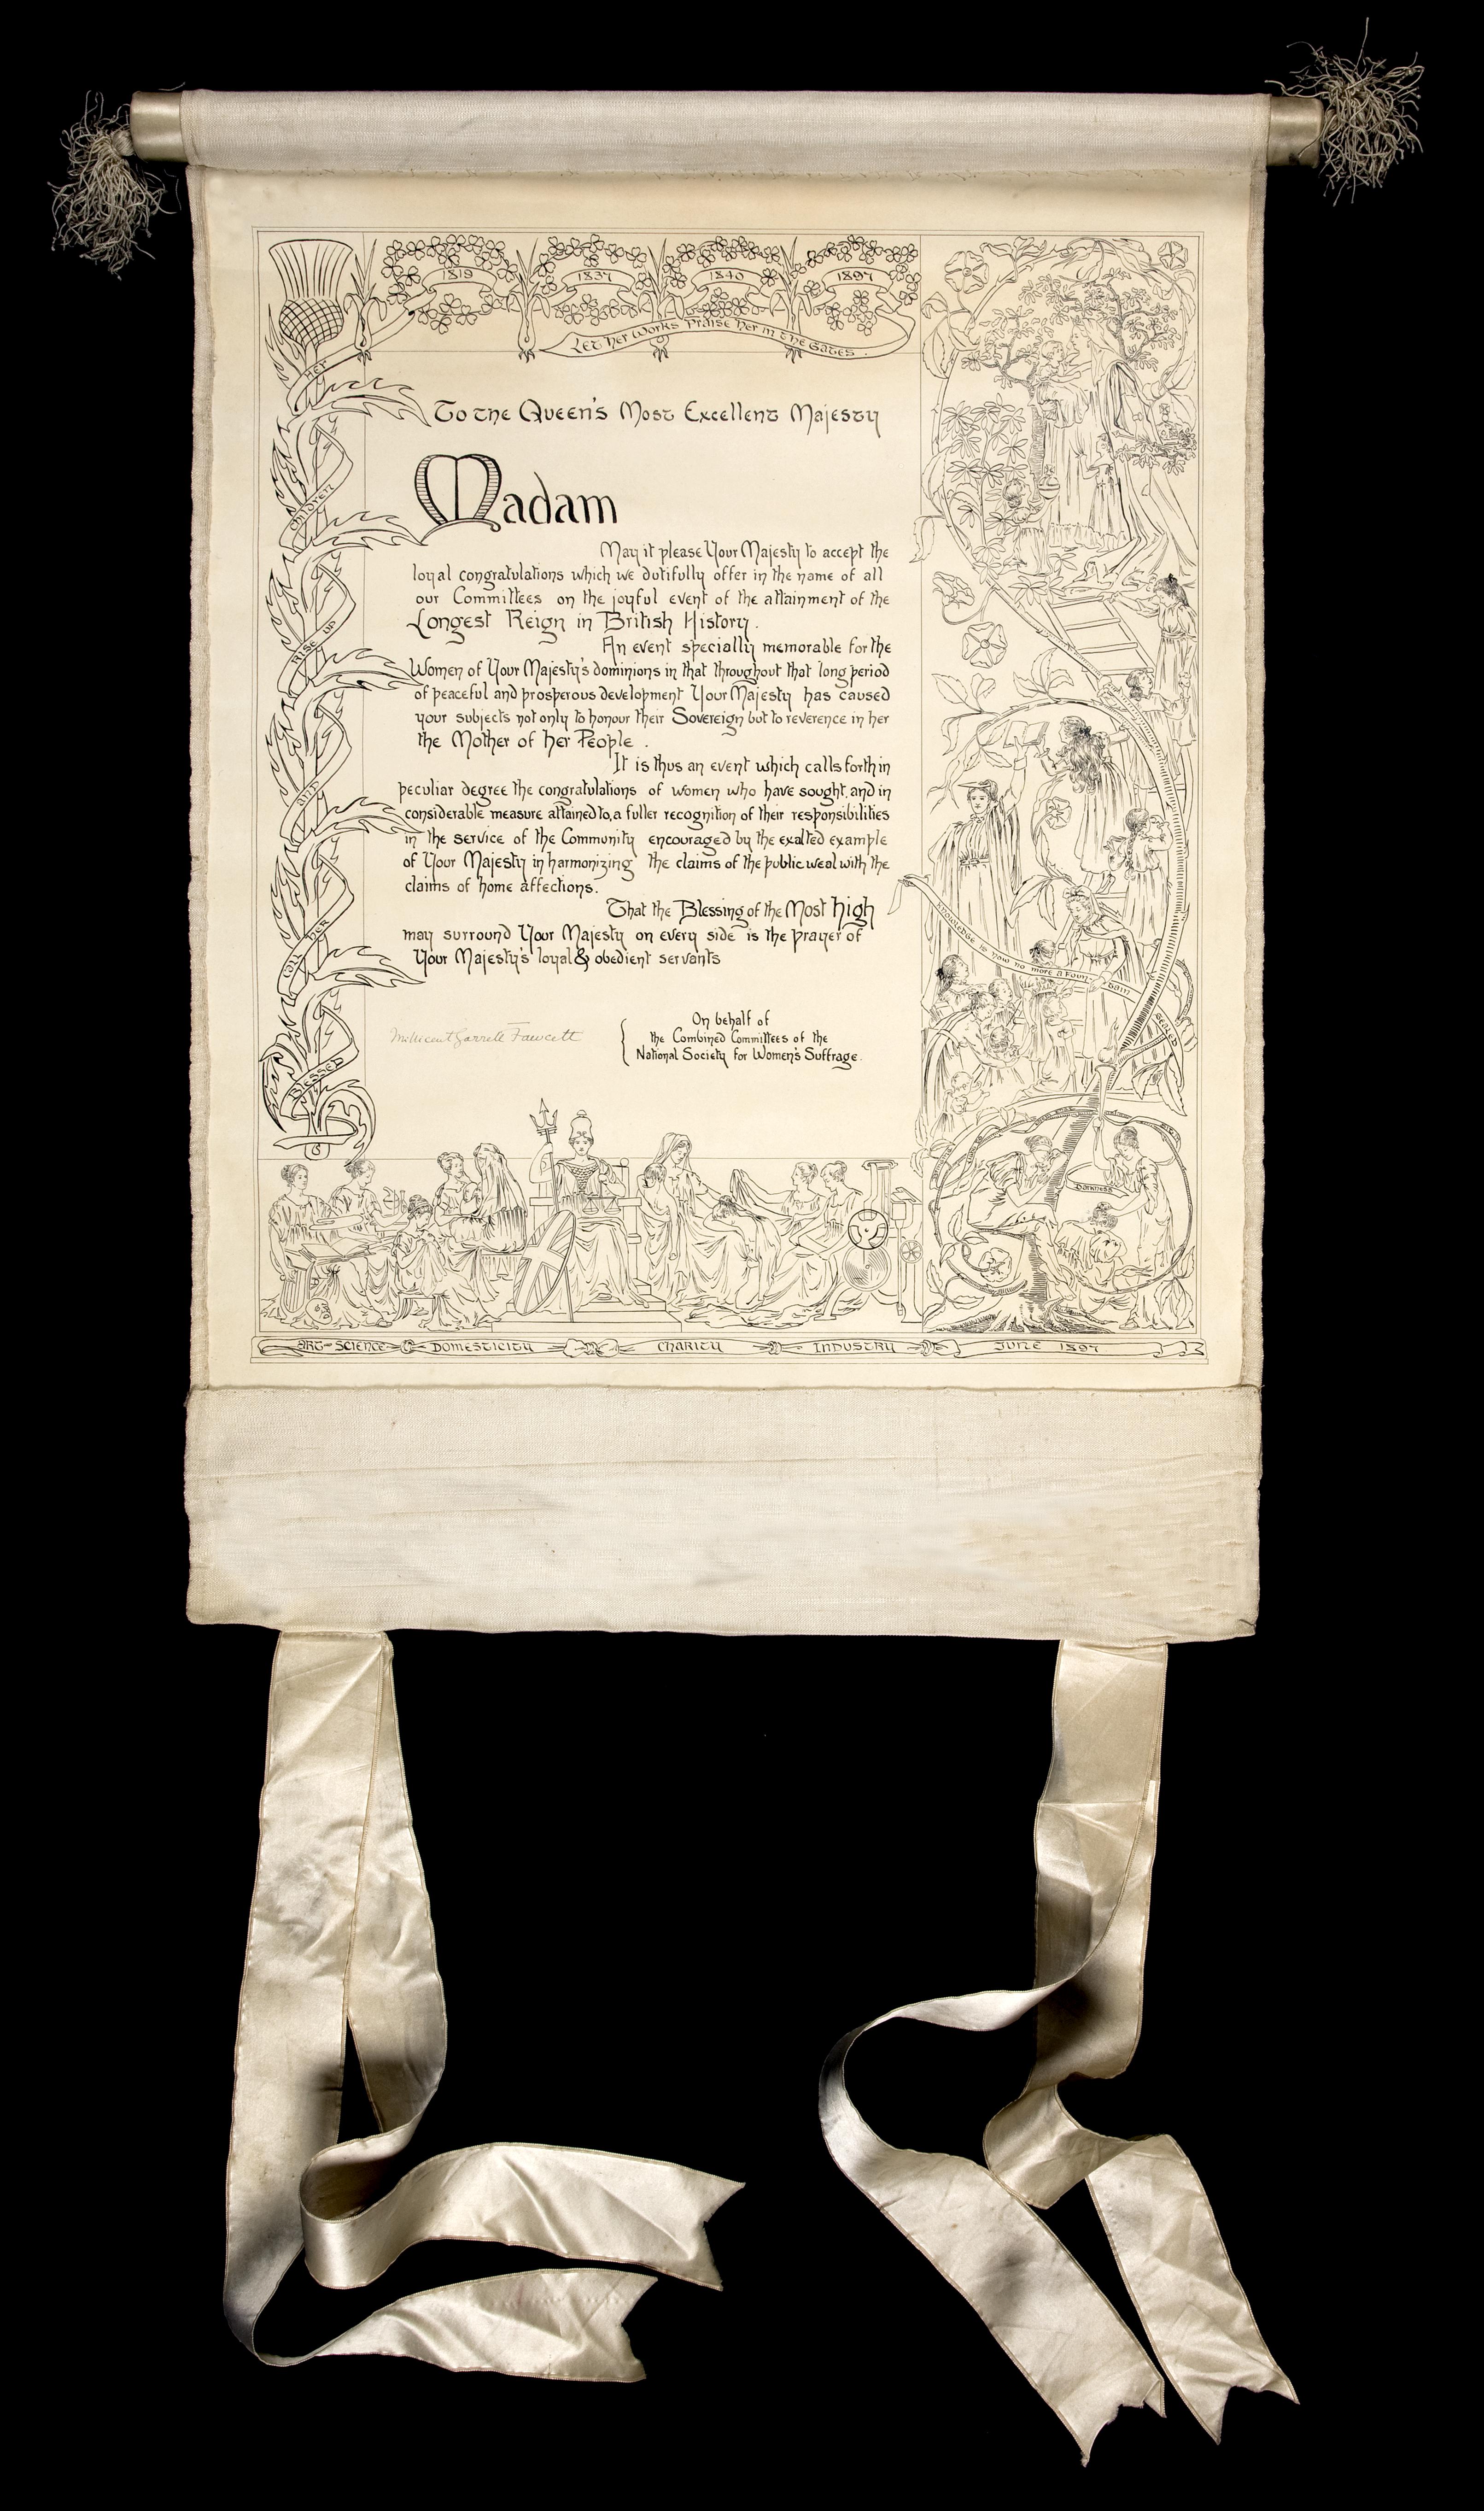 1819 1837 1840 1897
Let Her Works Praise Her in the Gates.
Her
Children
Rise up
and
call her
Blessed
To the Queen's Most Excellent Majesty
Madam
May it please Your Majesty to accept the
loyal congratulations which we dutifully offer in the name of all
our Committees on the joyful event of the attainment of the
Longest Reign in British History.
An event specially memorable for the
Women of Your Majesty's dominions in that throughout that long period
of peaceful and prosperous development Your Majesty has caused
your subjects not only to honour their Sovereign but to reverence in her
the Mother of her People.
It is thus an event which calls forth in
peculiar degree the congratulations of women who have sought, and in
considerable measure attained to, a fuller recognition of their responsibilities
in the service of the Community encouraged by the exalted example
of Your Majesty in harmonizing the claims of the public weal with the
claims of home affections.
That the Blessing of the Most High
may surround Your Majesty on every side is the prayer of
Your Majesty's loyal & obedient servants
Millicent Garrett Fawcett
On behalf of
the Combined Committees of the
National Society for Women's Suffrage.
Knowledge is now no more a fountain sealed
Darkness
Art Science Domesticity Charity Industry June 1897